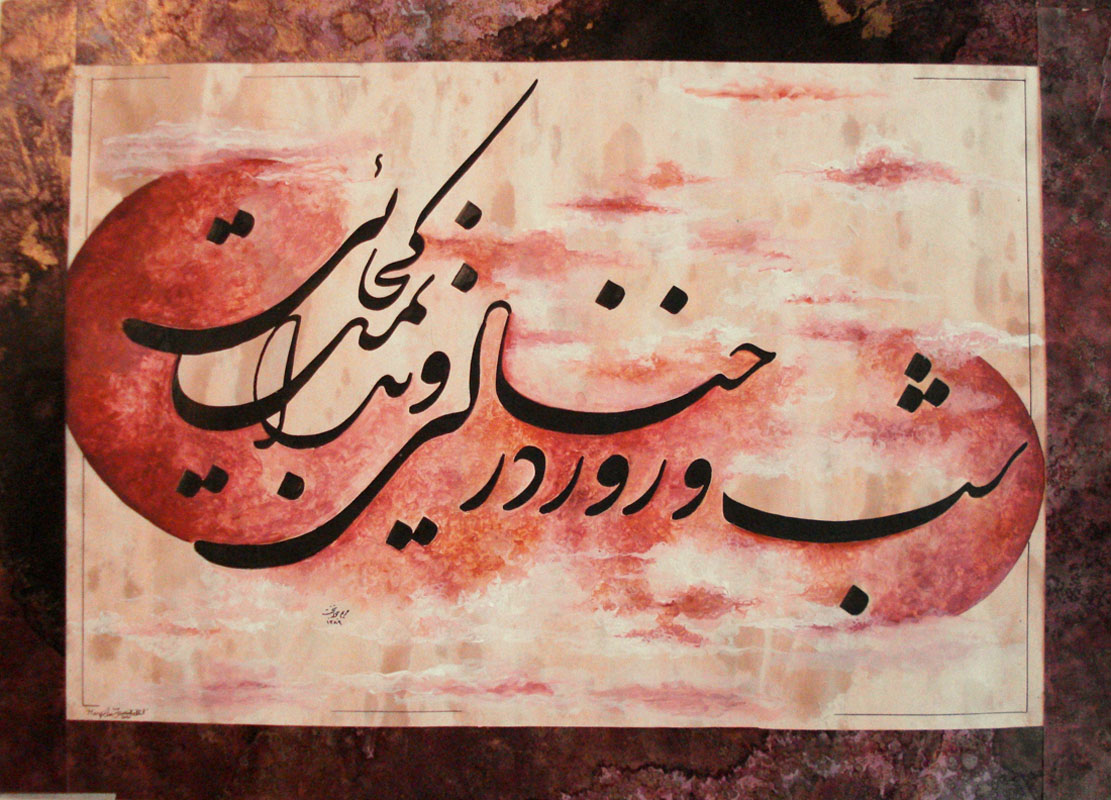 شب و روز در خیالی و ندانمت کجائی